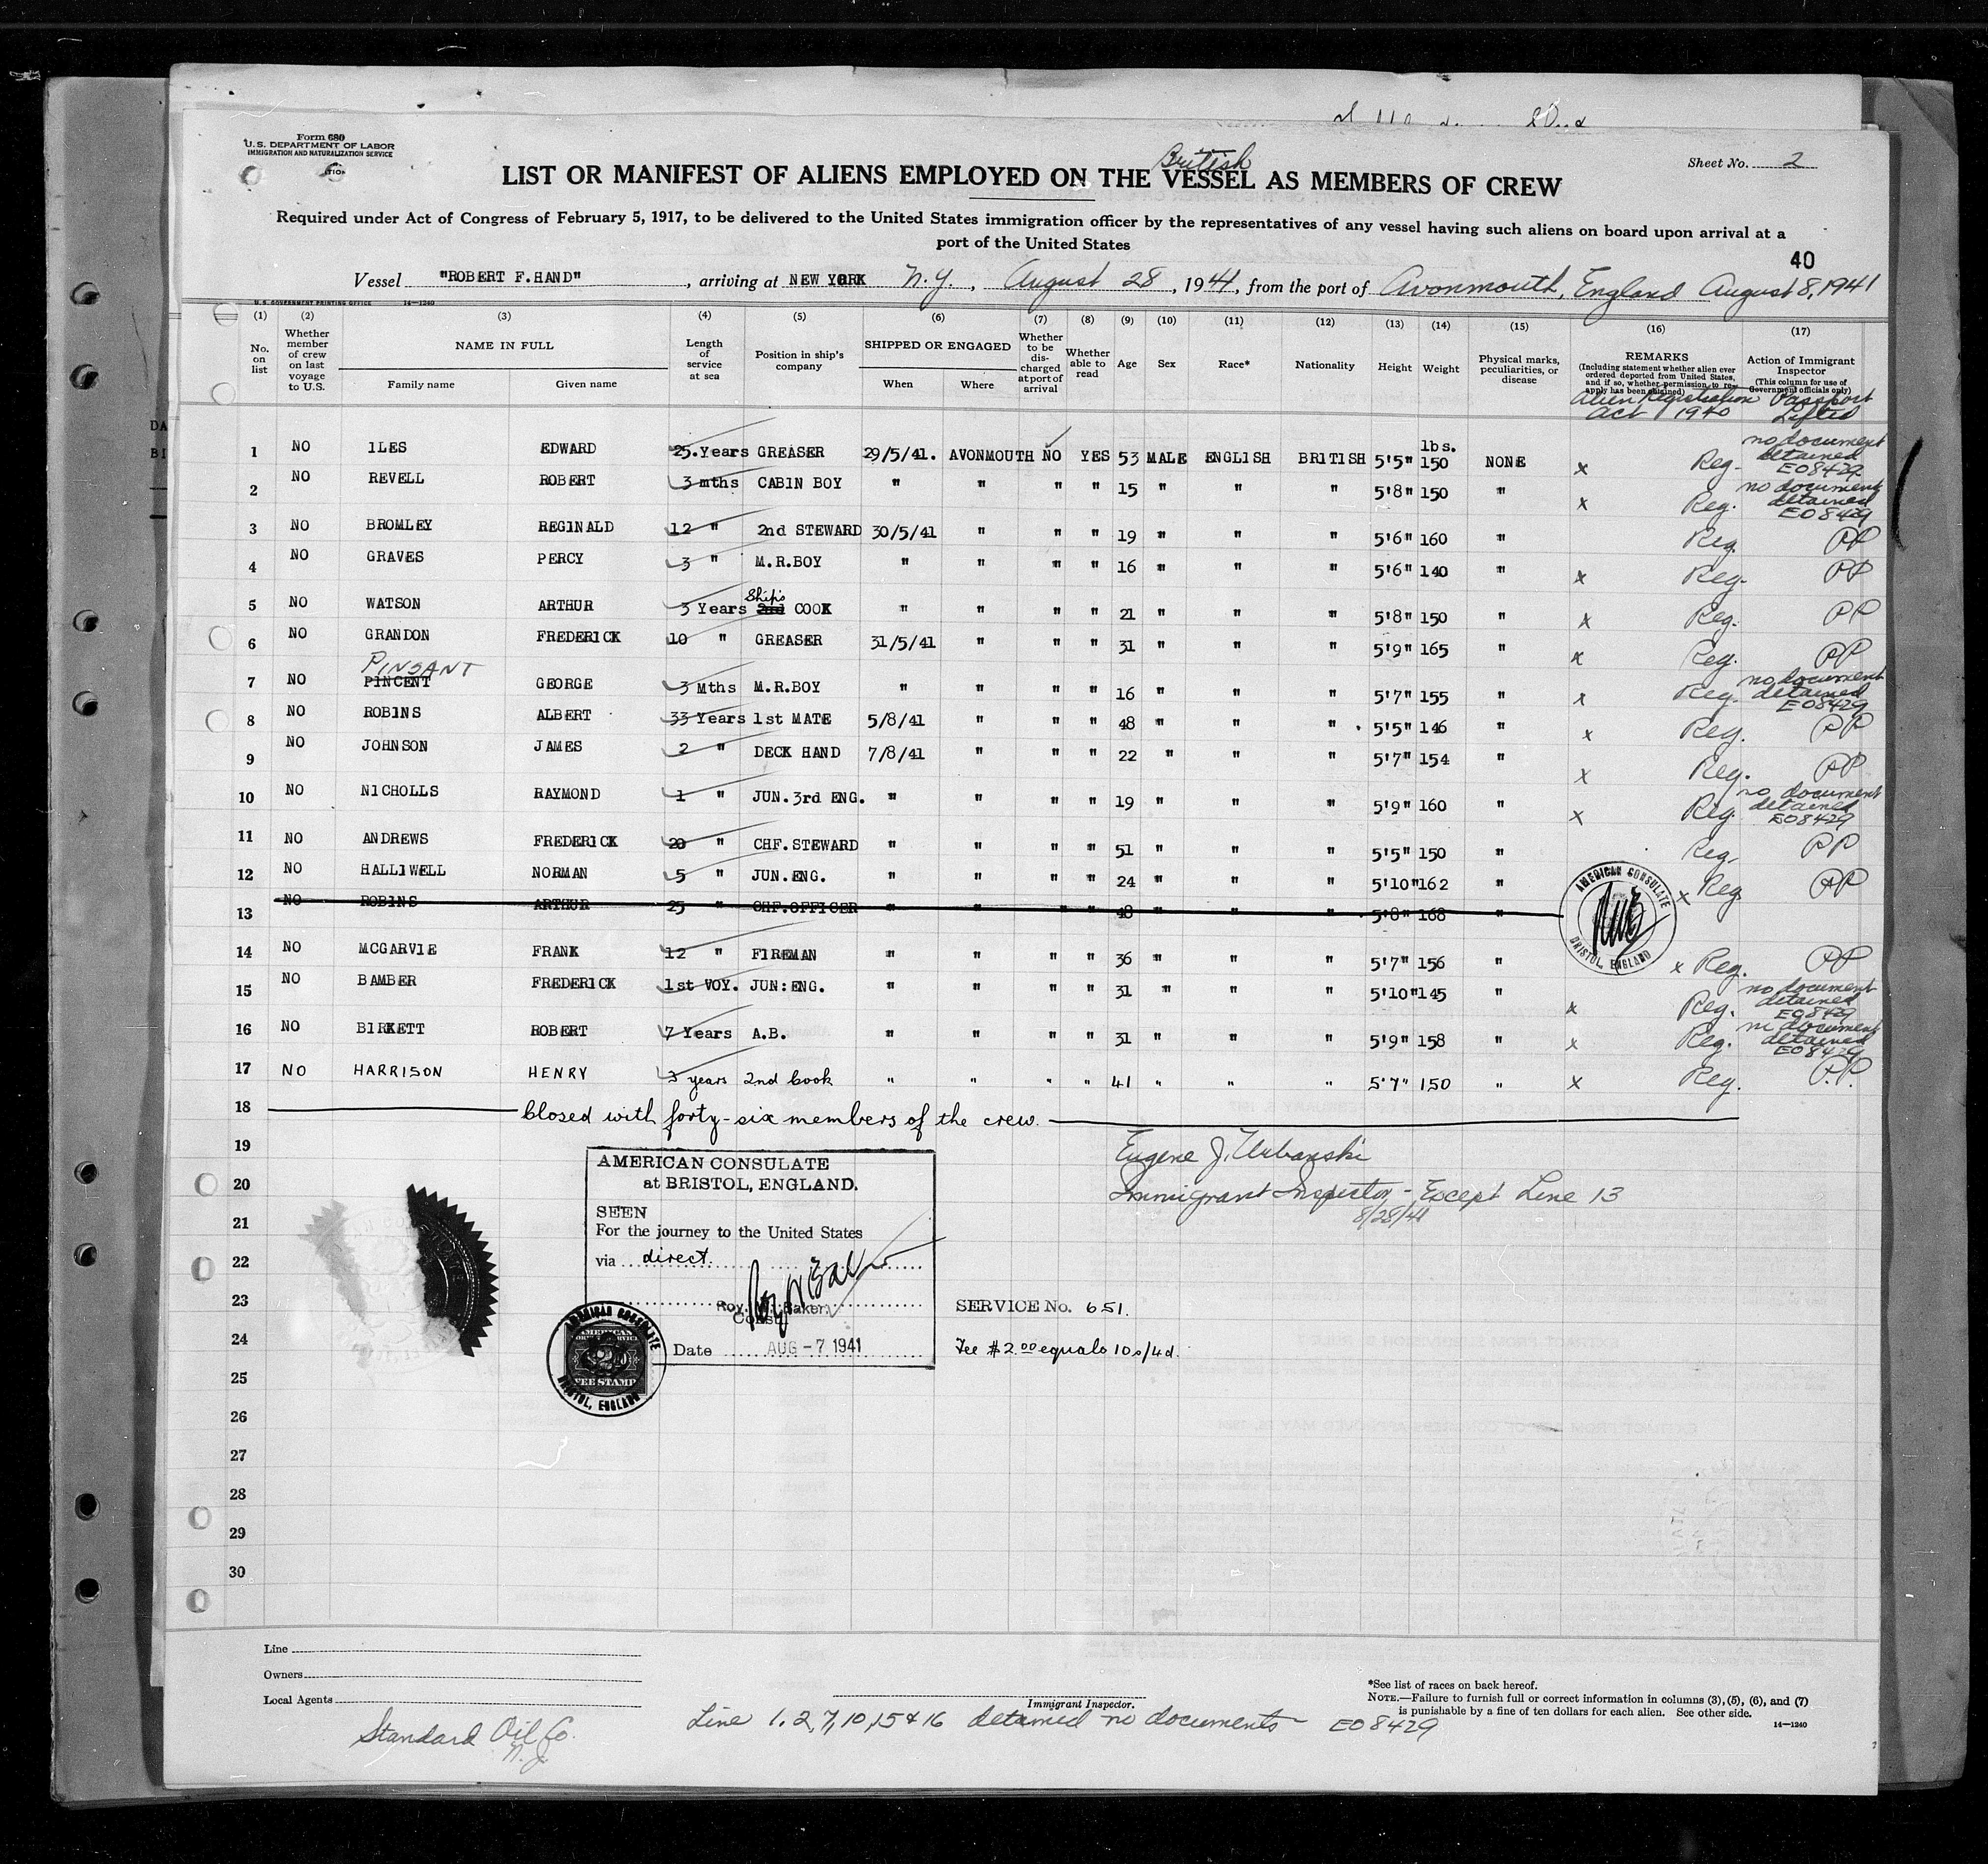 Form 680
U.S. DEPARTMENT OF LABOR
IMMIGRATION AND NATURALIZATION SERVICE
Sheet No. 2
British
LIST OR MANIFEST OF ALIENS EMPLOYED ON THE VESSEL AS MEMBERS OF CREW
Required under Act of Congress of February 5, 1917, to be delivered to the United States immigration officer by the representatives of any vessel having such aliens on board upon arrival at a
port of the United States
40
Vessel "ROBERT F.HAND", arriving at NEW YORK N.Y., August 28, 1941, from the port of Avonmouth, England August 8, 1941
U.S. GOVERNMENT PRINTING OFFICE 14—1240
(1) (2) (3) (4) (5) (6) (7) (8) (9) (10) (11) (12) (13) (14) (15) (16) (17)
No. on list
Whether member of crew on last voyage to U.S.
NAME IN FULL
Family name Given name
Length of service at sea
Position in ship's company
SHIPPED OR ENGAGED
When Where
Whether to be discharged at port of arrival
Whether able to read
Age Sex Race* Nationality Height Weight
Physical marks, peculiarities, or disease
REMARKS
(Including statement whether alien ever ordered deported from United States, and if so, whether permission to reapply has been obtained)
Alien Registration Act 1940
Action of Immigrant Inspector
(This column for use of Government officials only)
Passport Lifted
1 NO ILES EDWARD 25.Years GREASER 29/5/41. AVONMOUTH NO YES 53 MALE ENGLISH BRITISH 5'5" lbs. 150 NONE x Reg. no document detained EO8429
2 NO REVELL ROBERT 3 mths CABIN BOY " " " " 15 " " " 5'8" 150 " x Reg. no document detained EO8429
3 NO BROMLEY REGINALD 12 " 2nd STEWARD 30/5/41 " " " 19 " " " 5'6" 160 " Reg. PP
4 NO GRAVES PERCY 3 " M.R.BOY " " " " 16 " " " 5'6" 140 " x Reg. PP
5 NO WATSON ARTHUR 3 Years 2nd Ship's COOK " " " " 21 " " " 5'8" 150 " x Reg. PP
6 NO GRANDON FREDERICK 10 " GREASER 31/5/41 " " " 31 " " " 5'9" 165 " x Reg. PP
PINSANT
7 NO PINCENT GEORGE 3 Mths M.R.BOY " " " " 16 " " " 5'7" 155 " x Reg. no document detained EO8429
8 NO ROBINS ALBERT 33 Years 1st MATE 5/8/41 " " " 48 " " " 5'5" 146 " x Reg. PP
9 NO JOHNSON JAMES 2 " DECK HAND 7/8/41 " " " 22 " " " 5'7" 154 " x Reg. PP
10 NO NICHOLLS RAYMOND 1 " JUN.3rd ENG. " " " " 19 " " " 5'9" 160 " x Reg. no document detained EO8429
11 NO ANDREWS FREDERICK 20 " CHF.STEWARD " " " " 51 " " " 5'5" 150 " Reg. PP
12 NO HALLIWELL NORMAN 5 " JUN.ENG. " " " " 24 " " " 5'10" 162 " x Reg. PP
13 NO ROBINS ARTHUR 25 " CHF.OFFICER " " " " 48 " " " 5'8" 168 "
AMERICAN CONSULATE
BRISTOL, ENGLAND
14 NO MCGARVIE FRANK 12 " FIREMAN " " " " 36 " " " 5'7" 156 " x Reg. PP
15 NO BAMBER FREDERICK 1st VOY. JUN:ENG. " " " " 31 " " " 5'10" 145 " x Reg. no document detained EO8429
16 NO BIRKETT ROBERT 7 Years A.B. " " " " 31 " " " 5'9" 158 " x Reg. no document detained EO8429
17 NO HARRISON HENRY 3 years 2nd Cook " " " " 41 " " " 5'7" 150 " x Reg. P.P.
18 Closed with forty-six members of the crew.
19
20
21
22
23
24
25
26
27
28
29
30
Eugene J. Urbanski
Immigrant Inspector - Except Line 13
8/28/41
AMERICAN CONSULATE
at BRISTOL, ENGLAND.
SEEN
For the journey to the United States
via direct
Roy Baker
Consul
Date AUG-7 1941
AMERICAN CONSULATE
AMERICAN
FEE STAMP
BRISTOL, ENGLAND
SERVICE No. 651.
Fee $2.00 equals 10s/4d.
Line
Owners
Local Agents
Standard Oil Co.
N.J.
Immigrant Inspector.
Line 1, 2, 7, 10, 15 & 16 detained no documents EO8429
*See list of races on back hereof.
NOTE.—Failure to furnish full or correct information in columns (3), (5), (6), and (7)
is punishable by a fine of ten dollars for each alien. See other side.
14—1240